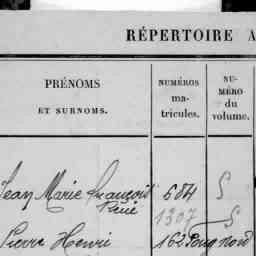 RÉPERTOIRE A
PRÉNOMS
ET SURNOMS.
NUMÉROS
ma-
tricules.
NU-
MÉRO
du
volume.
Jean Marie François 684 S
René 1307 S
Pierre Henri 162 nord